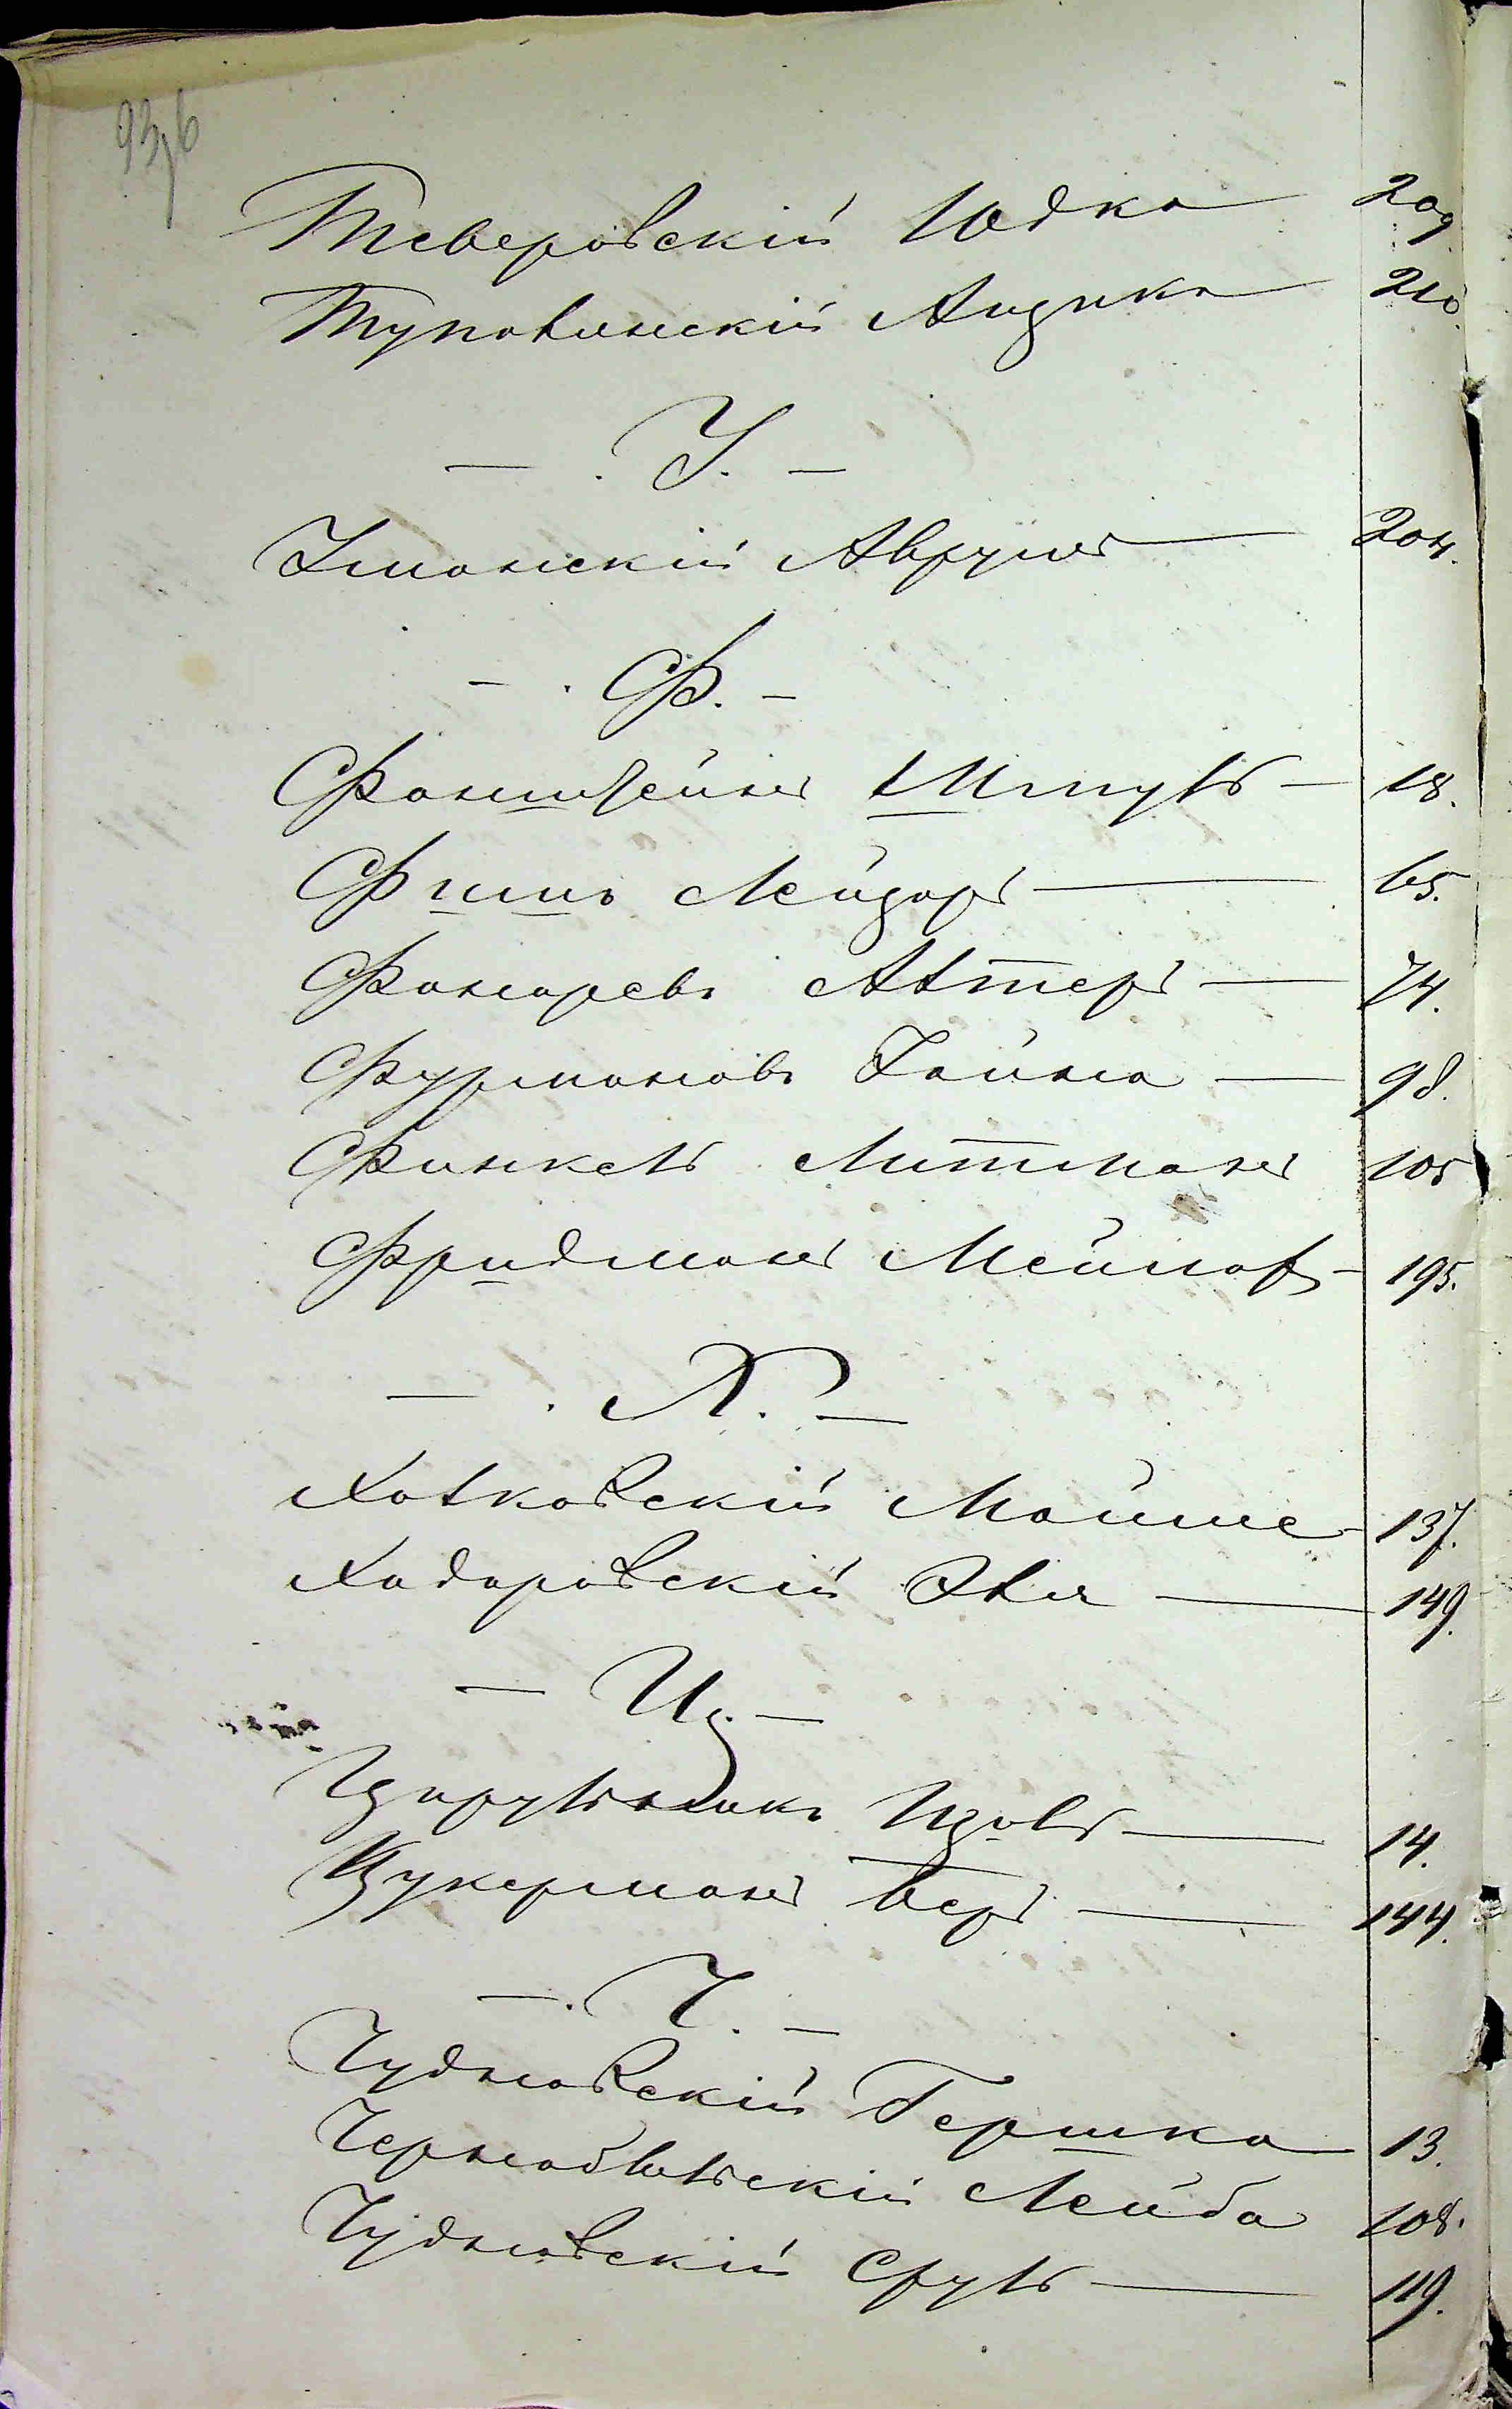 Тверовскій Юдка 209
Туповинскій Айзикъ 210.
— . У. —
Уманскій Аврумъ 204.
— . Ф. —
Фанштейнъ Шмуль — 18.
Фишъ Лейзоръ 65.
Фанаревъ Алтеръ — 74.
Фурмановъ Хаимъ — 98.
Финкель Литманъ 105
Фридманъ Мейлах — 195.
— . Х. —
Халковскій Мойше 137.
Хадаровскій Эля — 149.
— Ц. —
Цирульникъ 14.
Цукерманъ Беръ — 144.
— . Ч. —
Чудновскій Гершко 13.
Чернобыльскій Лейба 108.
Чудновскій Сруль — 119.